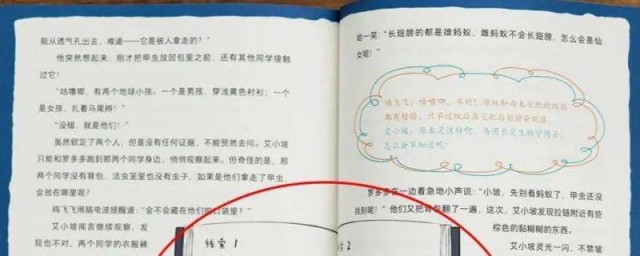 能从透气孔出去，难道——它是被人拿走的？”
他突然想起来，刚才把甲虫放回包里之前，还有其他同学接触
过它！
“咕噜唧，有两个地球小孩。一个是男孩，穿浅黄色衬衫；一个
是女孩，扎着马尾辫！”
“没错，就是他们！”
虽然锁定了两个人，但是没有任何证据，不能贸然去问。艾小坡
只能和罗多多跑到那两个同学身边，悄悄观察起来。但奇怪的是，那
两个同学没有背包，活虫笼里也没有虫子，如果是他们拿走了甲虫，
会放在哪里呢？
鸡飞飞用脑电波提醒道：“会不会藏在他们的口袋里？”
艾小坡闻言继续观察，发
现也不对，两个同学的衣服裤
线索 1
哈一笑：“长翅膀的都是雄蚂蚁，雌蚂蚁不会长翅膀，怎么会是仙
女呢！”
鸡飞飞：咕噜唧，不对！雌蚁和雄蚁交配的时候
都有翅膀，只不过蚁后交配后翅膀会脱落。
艾小坡：原来是这样啊，马团长是生物学博士，
怎么会不知道呢？
罗多多在一边着急地小声说：“小坡，先别看蚂蚁了，甲虫还没
找到呢！”他们又把背包翻了一遍，这次，艾小坡发现拉链附近有些
棕色的黏糊糊的东西。
艾小坡灵光一闪，不禁皱
2